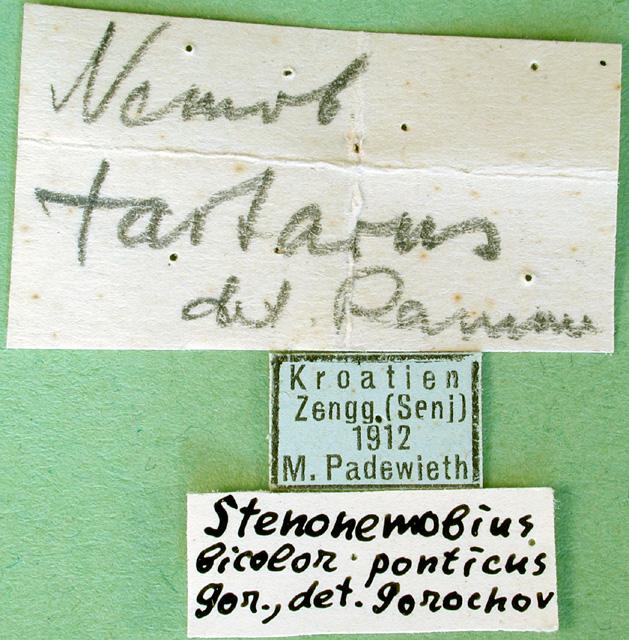 Nemob
tartarus
det. Ramme
Kroatien
Zengg.(Senj)
1912
M. Padewieth
Stenonemobius
bicolor ponticus
Gor., det. Gorochov